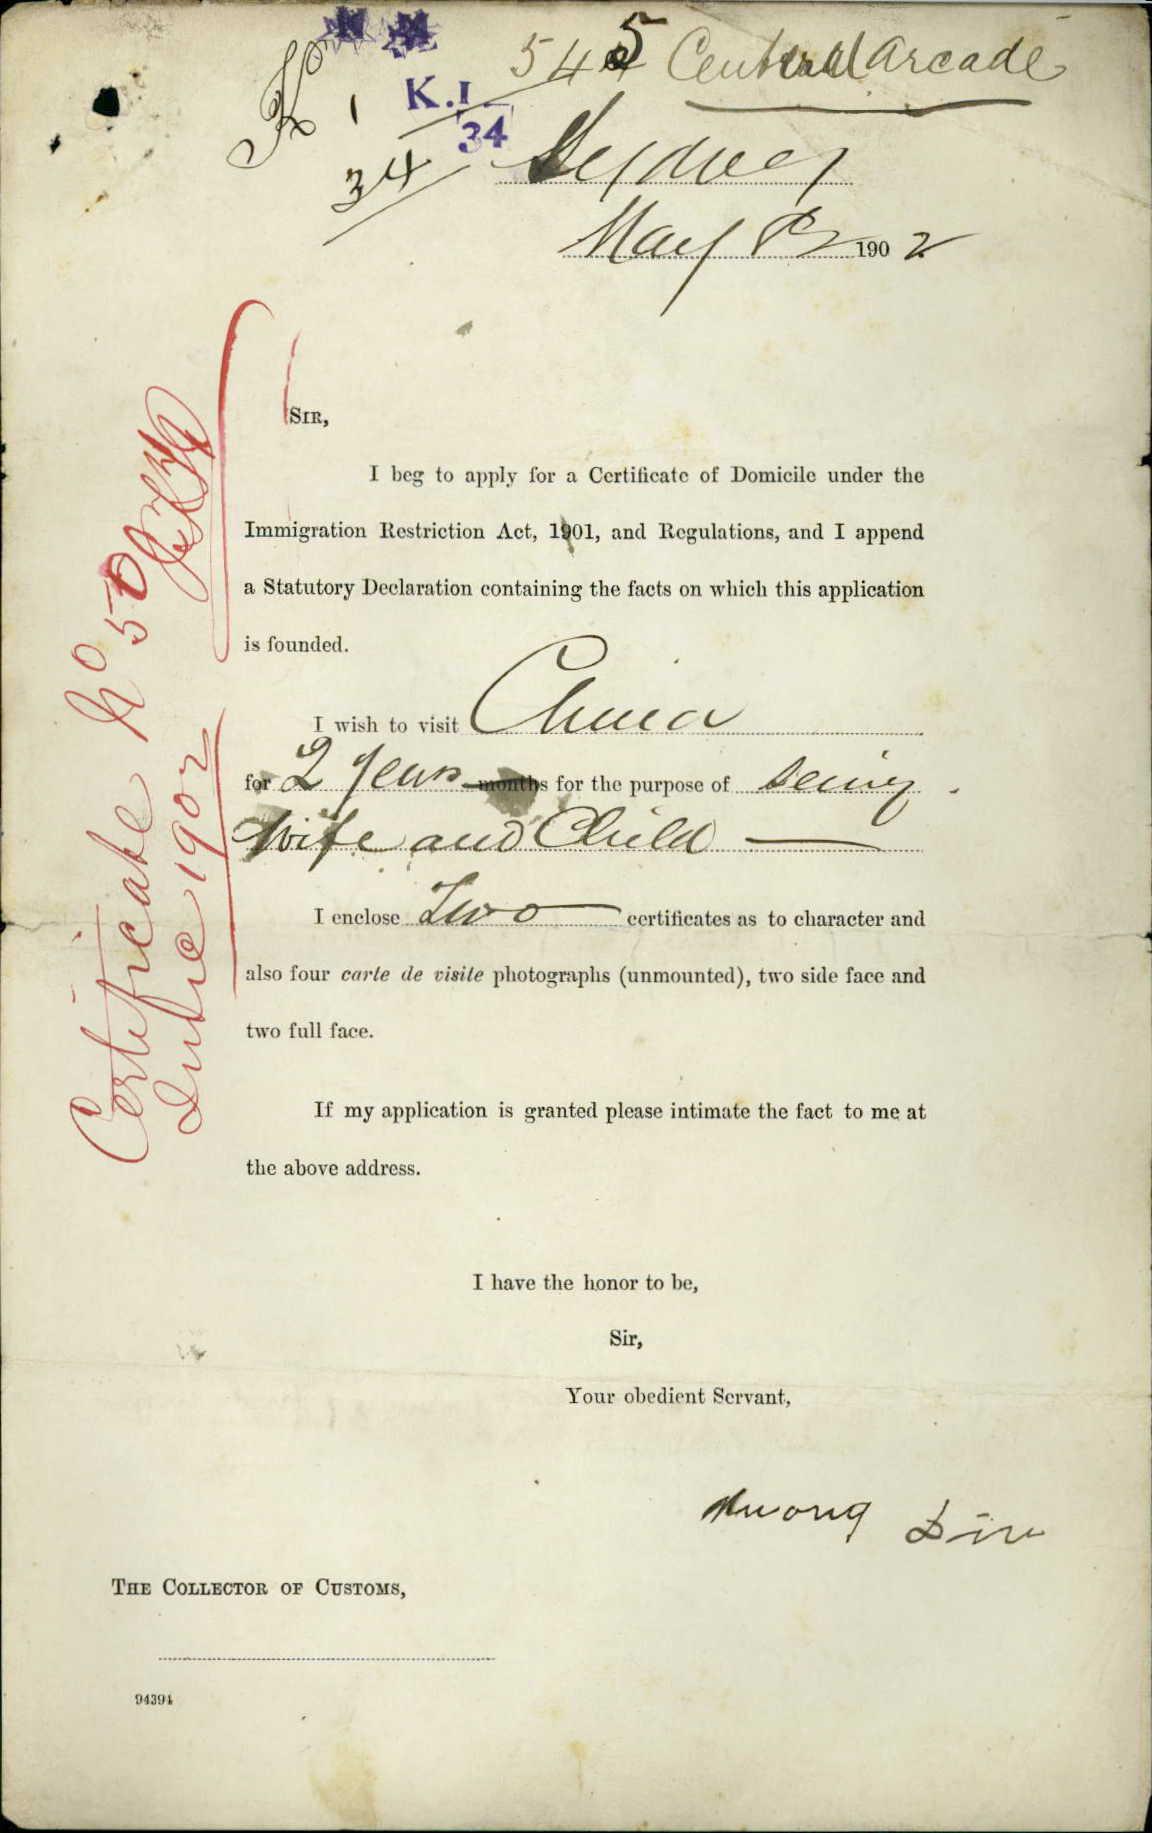 545 Central Arcade
K. 1
34
K.1
34
Sydney
May 1902
SIR,
I beg to apply for a Certificate of Domicile under the
Immigration Restriction Act, 1901, and Regulations, and I append
a Statutory Declaration containing the facts on which this application
is founded.
I wish to visit China
for 2 years months for the purpose of seeing
Wife and Child
I enclose Two certificates as to character and
also four carte de visite photographs (unmounted), two side face and
two full face.
If my application is granted please intimate the fact to me at
the above address.
I have the honor to be,
Sir,
Your obedient Servant,
THE COLLECTOR OF CUSTOMS,
94394
Certificate No 50
1902